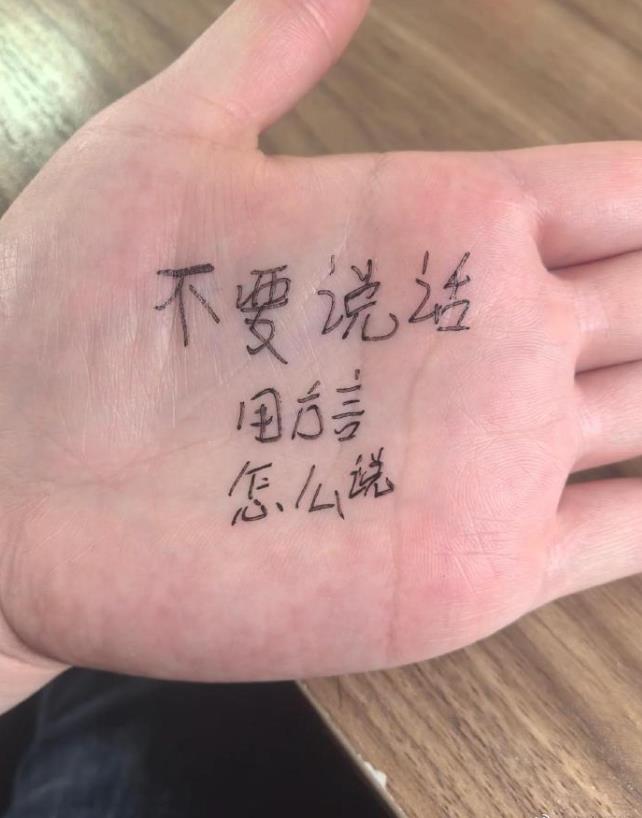 不要说话
用方言
怎么说